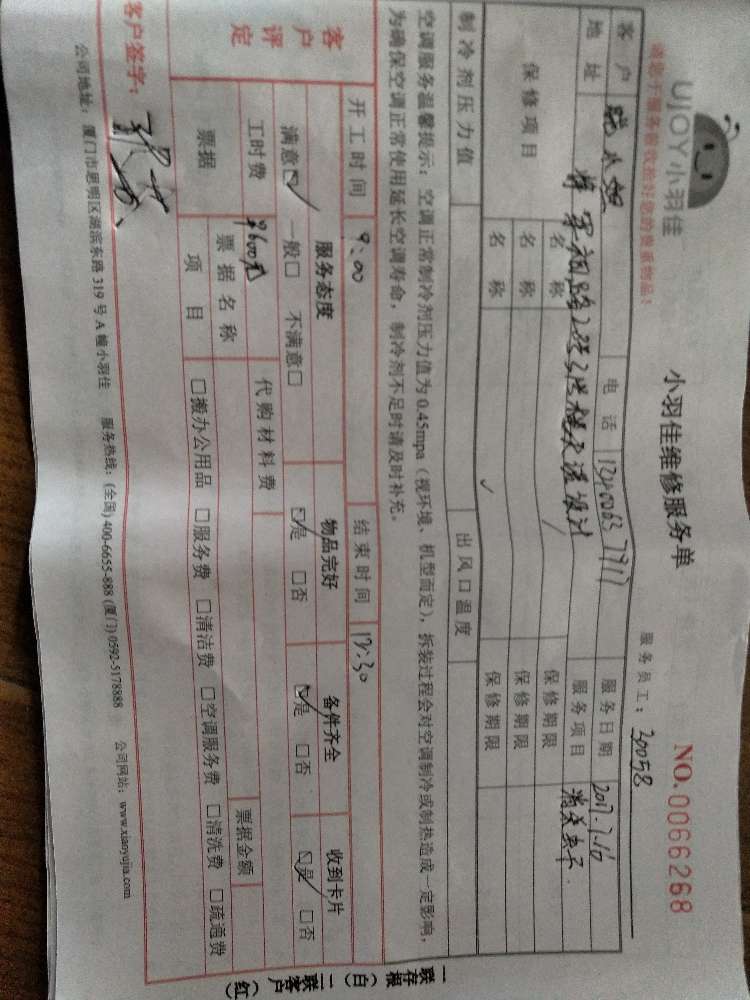 UJOY小羽佳
小羽佳维修服务单
NO.0066268
请您于服务前收拾好您的贵重物品!
服务员工: 20058
客户 电话 服务日期 2017.7.16
地址 服务项目
保修项目 名称 保修期限
名称 保修期限
名称 保修期限
制冷剂压力值 出风口温度
空调服务温馨提示:空调正常制冷剂压力值为0.45mpa(视环境、机型而定),拆装过程会对空调制冷或制热造成一定影响,
为确保空调正常使用延长空调寿命,制冷剂不足时请及时补充。
客户评定
开工时间 9:00 结束时间 17:30
服务态度 物品完好 备件齐全 收到卡片
满意☑ 一般□ 不满意□ ☑是 □否 ☑是 □否 ☑是 □否
工时费 代购材料费
票据 票据名称 票据金额
项目 □搬办公用品 □服务费 □清洁费 □空调服务费 □清洗费 □疏通费
客户签字:
公司地址:厦门市思明区湖滨东路319号A幢小羽佳 服务热线:(全国)400-6655-888 (厦门)0592-5178888 公司网站:www.xiaoyujia.com
一联存根(白) 二联客户(红)